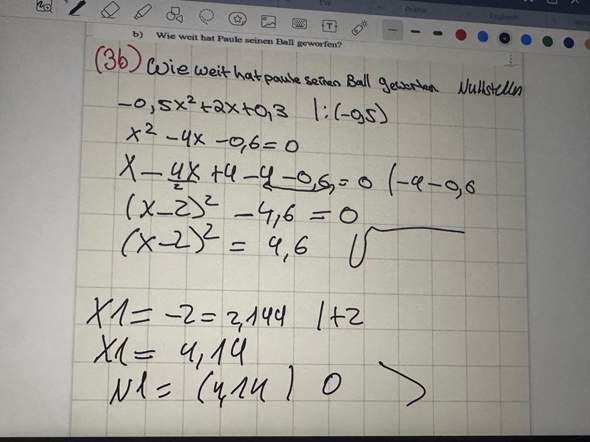 b) Wie weit hat Paule seinen Ball geworfen?
(3b) Wie weit hat paule seinen Ball geworfen Nullstellen
-0,5x²+2x+0,3 |:(-0,5)
x² -4x -0,6=0
X - 4x/2 +4 -4 -0,6 = 0 (-4 -0,6
(x-2)² -4,6 = 0
(x-2)² = 4,6 √
X1= -2 = 2,144 |+2
X1= 4,14
N1= (4,14 ) 0